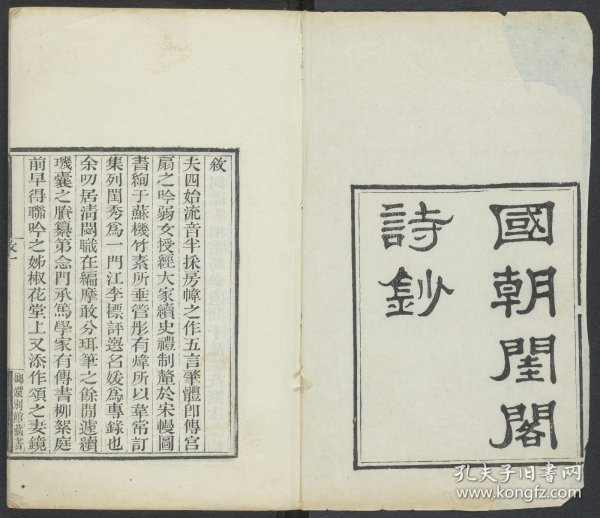 國朝閨閣
詩鈔
敘
夫四始流音半採房幃之作五言肇體卽傳宮
扇之吟弱女授經大家續史禮制釐於宋幔圖
書絢于蘇機竹素所垂管彤有煒所以韋常訂
集列閨秀爲一門江李標評選名媛爲專錄也
余叨居淸閟職在編摩敢分珥筆之餘閒遽續
璣囊之賸纂第念門承篤學家有傳書柳絮庭
前早得聯吟之姊椒花堂上又添作頌之妻鏡
敘
一
嫏嬛別館藏書
孔夫子旧书网
www.kongfz.com